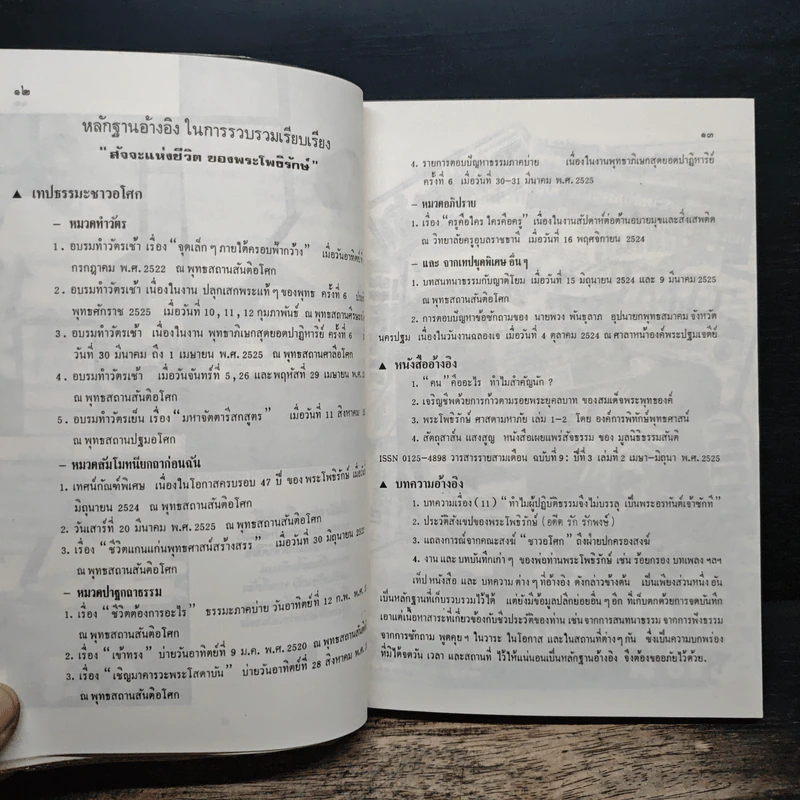 ๑๒
หลักฐานอ้างอิง ในการรวบรวมเรียบเรียง
"สัจจะแห่งชีวิต ของพระโพธิรักษ์"
▲ เทปธรรมะชาวอโศก
– หมวดทำวัตร
1. อบรมทำวัตรเช้า เรื่อง "จุดเล็กๆ ภายใต้ครอบฟ้ากว้าง" เมื่อวันอาทิตย์ที่
กรกฎาคม พ.ศ. 2522 ณ พุทธสถานสันติอโศก
2. อบรมทำวัตรเช้า เนื่องในงาน ปลุกเสกพระแท้ๆ ของพุทธ ครั้งที่ 6
พุทธศักราช 2525 เมื่อวันที่ 10, 11, 12 กุมภาพันธ์ ณ พุทธสถาน
3. อบรมทำวัตรเช้า เนื่องในงาน พุทธาภิเษกสุดยอดปาฏิหาริย์ ครั้งที่ 6
วันที่ 30 มีนาคม ถึง 1 เมษายน พ.ศ. 2525 ณ พุทธสถานศาลีอโศก
4. อบรมทำวัตรเช้า เมื่อวันจันทร์ที่ 5, 26 และพฤหัสที่ 29 เมษายน พ.ศ.
ณ พุทธสถานสันติอโศก
5. อบรมทำวัตรเย็น เรื่อง "มหาจัตตารีสกสูตร" เมื่อวันที่ 11 สิงหาคม
ณ พุทธสถานปฐมอโศก
– หมวดสัมโมทนียกถาก่อนฉัน
1. เทศน์กัณฑ์พิเศษ เนื่องในโอกาสครบรอบ 47 ปี ของ พระโพธิรักษ์
มิถุนายน 2524 ณ พุทธสถานสันติอโศก
2. วันเสาร์ที่ 20 มีนาคม พ.ศ. 2525 ณ พุทธสถานสันติอโศก
3. เรื่อง "ชีวิตแกนแก่นพุทธศาสน์สร้างสรร" เมื่อวันที่ 30 มิถุนายน
ณ พุทธสถานสันติอโศก
– หมวดปาฐกถาธรรม
1. เรื่อง "ชีวิตต้องการอะไร" ธรรมะภาคบ่าย วันอาทิตย์ที่ 12 ก.พ. พ.ศ.
ณ พุทธสถานสันติอโศก
2. เรื่อง "เข้าทรง" บ่ายวันอาทิตย์ที่ 9 ม.ค. พ.ศ. 2520 ณ พุทธสถานสันติ
3. เรื่อง "เชิญมาคารวะพระโสดาบัน" บ่ายวันอาทิตย์ที่ 28 สิงหาคม พ.ศ.
ณ พุทธสถานสันติอโศก
๑๓
4. รายการตอบปัญหาธรรมภาคบ่าย เนื่องในงานพุทธาภิเษกสุดยอดปาฏิหาริย์
ครั้งที่ 6 เมื่อวันที่ 30-31 มีนาคม พ.ศ. 2525
– หมวดอภิปราย
1. เรื่อง "ครูคือใคร ใครคือครู" เนื่องในงานสัปดาห์ต่อต้านอบายมุขและสิ่งเสพติด
ณ วิทยาลัยครูอุบลราชธานี เมื่อวันที่ 16 พฤศจิกายน 2524
– และ จากเทปชุดพิเศษ อื่นๆ
1. บทสนทนาธรรมกับญาติโยม เมื่อวันที่ 15 มิถุนายน 2524 และ 9 มีนาคม 2525
ณ พุทธสถานสันติอโศก
2. การตอบปัญหาข้อซักถามของ นายพวง พันธุลาภ อุปนายกพุทธสมาคม จังหวัด
นครปฐม เนื่องในวันงานฉลองเจ เมื่อวันที่ 4 ตุลาคม 2524 ณ ศาลาหน้าองค์พระปฐมเจดีย์
▲ หนังสืออ้างอิง
1. "คน" คืออะไร ทำไมสำคัญนัก ?
2. เจริญชีพด้วยการก้าวตามรอยพระยุคลบาท ของสมเด็จพระพุทธองค์
3. พระโพธิรักษ์ ศาสดามหาภัย เล่ม 1-2 โดย องค์การพิทักษ์พุทธศาสน์
4. สัตถุสาส์น แสงสูญ หนังสือเผยแพร่สัจธรรม ของ มูลนิธิธรรมสันติ
ISSN 0125-4898 วารสารรายสามเดือน ฉบับที่ 9: ปีที่ 3 เล่มที่ 2 เมษา-มิถุนา พ.ศ. 2525
▲ บทความอ้างอิง
1. บทความเรื่อง (11) "ทำไมผู้ปฏิบัติธรรมจึงไม่บรรลุ เป็นพระอรหันต์เจ้าซักที"
2. ประวัติสังเขปของพระโพธิรักษ์ (อดีต รัก รักพงษ์)
3. แถลงการณ์จากคณะสงฆ์ "ชาวอโศก" ถึงฝ่ายปกครองสงฆ์
4. งาน และบทบันทึกเก่าๆ ของพ่อท่านพระโพธิรักษ์ เช่น ร้อยกรอง บทเพลง ฯลฯ
เท็ป หนังสือ และ บทความ ต่างๆ ที่อ้างอิง ดังกล่าวข้างต้น เป็นเพียงส่วนหนึ่ง อัน
เป็นหลักฐานที่เก็บรวบรวมไว้ได้ แต่ยังมีข้อมูลปลีกย่อยอื่นๆ อีก ที่เก็บตกด้วยการจดบันทึก
เอาแต่เนื้อหาสาระที่เกี่ยวข้องกับชีวประวัติของท่าน เช่น จากการสนทนาธรรม จากการฟังธรรม
จากการซักถาม พูดคุยฯ ในวาระ ในโอกาส และในสถานที่ต่างๆ กัน ซึ่งเป็นความบกพร่อง
ที่มิได้จดวัน เวลา และสถานที่ ไว้ให้แน่นอนเป็นหลักฐานอ้างอิง จึงต้องขออภัยไว้ด้วย.